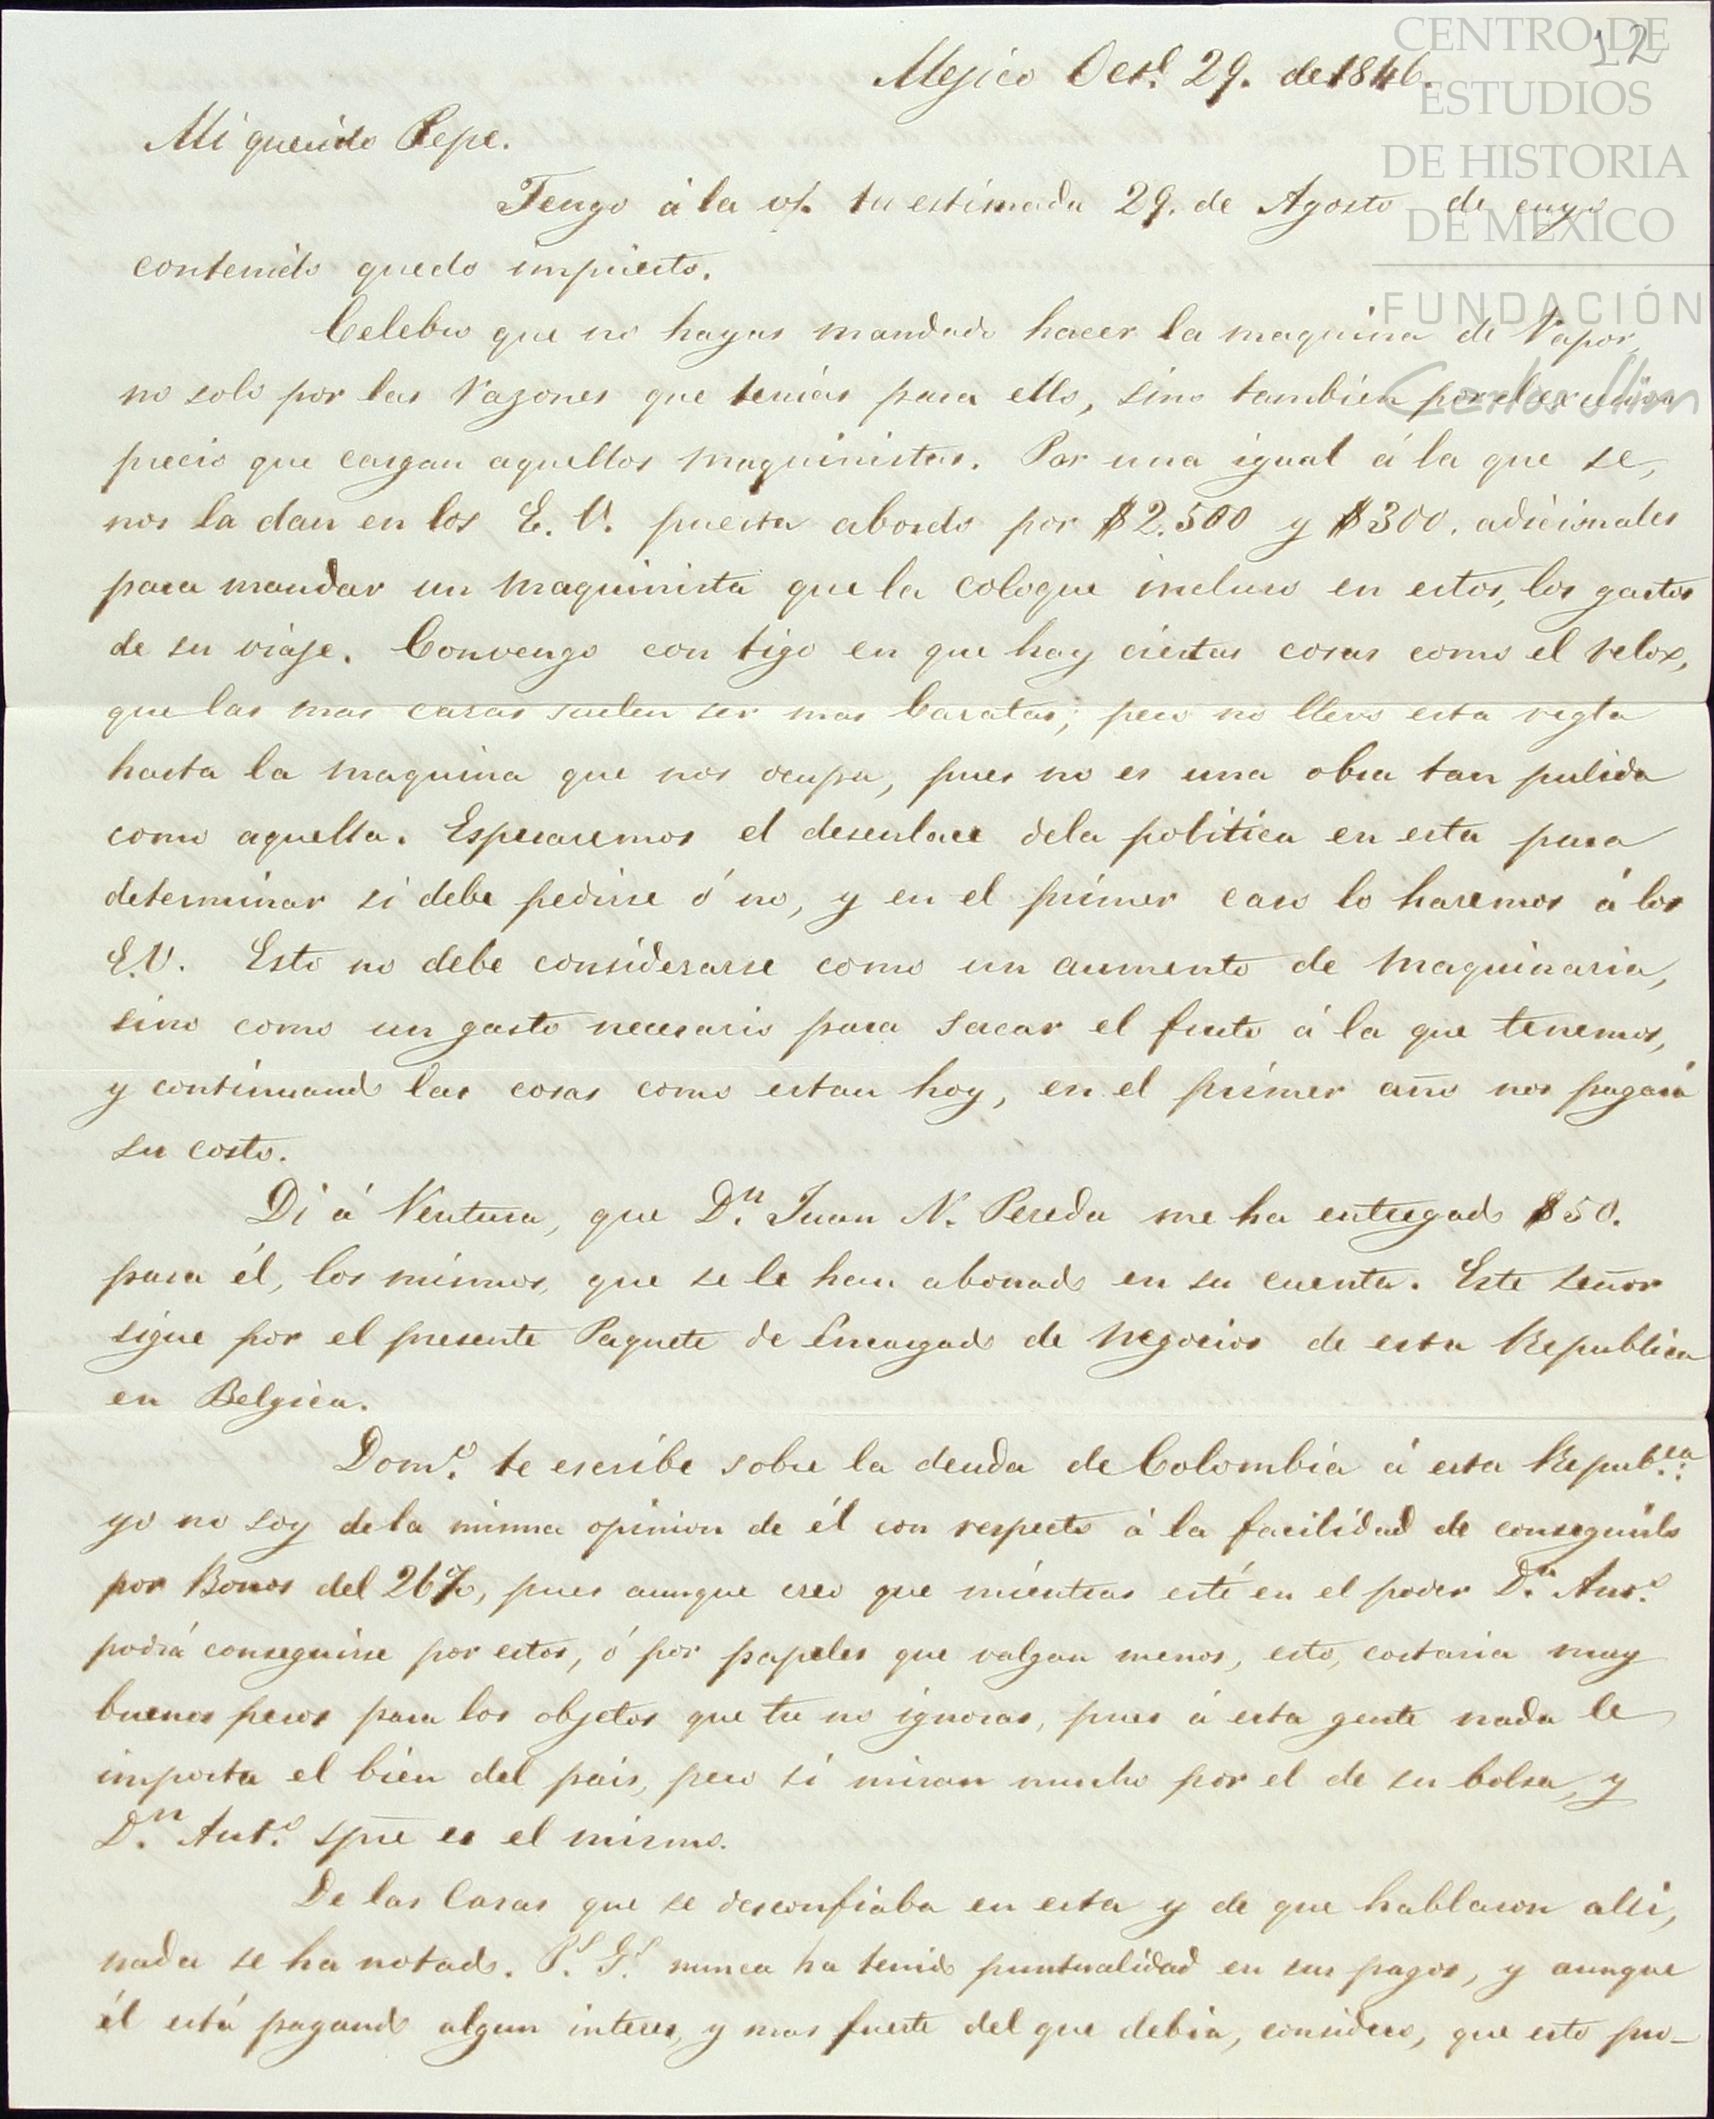 CENTRO DE
ESTUDIOS
DE HISTORIA
DE MÉXICO
FUNDACIÓN
Carlos Slim
12
Mejico Oct.e 29. de 1846.
Mi querido Pepe.
Tengo á la v/. tu estimada 29. de Agosto de cuyo
contenido quedo impuesto.
Celebro que no hayas mandado hacer la maquina de Vapor,
no solo por las razones que tenias para ello, sino tambien por el excesivo
precio que cargan aquellos maquinistas. Por una igual á la que se,
nos la dan en los E. U. puesta abordo por $2.500 y $300. adicionales
para mandar un maquinista que la coloque incluso en estos, los gastos
de su viaje. Convengo con tigo en que hay ciertas cosas como el relox,
que las mas caras suelen ser mas baratas; pero no llevo esta regla
hasta la maquina que nos ocupa, pues no es una obra tan pulida
como aquella. Esperaremos el desenlace dela politica en esta para
determinar si debe pedirse ó no, y en el primer caso lo haremos á los
E.U. Esto no debe considerarse como un aumento de maquinaria,
sino como un gasto necesario para sacar el fruto á la que tenemos,
y continuando las cosas como estan hoy, en el primer año nos pagará
su costo.
Di á Ventura, que D.n Juan N. Pereda me ha entregado $50.
para él, los mismos, que se le han abonado en su cuenta. Este señor
sigue por el presente Paquete de Encargado de negocios de esta Republica
en Belgica.
Dom.o te escribe sobre la deuda de Colombia á esta Repub.ca:
yo no soy dela misma opinion de él con respecto á la facilidad de conseguirla
por Bonos del 26%, pues aunque creo que miéntras esté en el poder D.n Ant.o
podrá conseguirse por estos, ó por papeles que valgan menos, esto, costaria muy
buenos pesos para los objetos que tu no ignoras, pues á esta gente nada le
importa el bien del pais, pero si miran mucho por el de su bolsa, y
D.n Ant.o spre es el mismo.
De las Casas que se desconfiaba en esta y de que hablaron alli,
nada se ha notado. P. G. nunca ha tenido puntualidad en sus pagos, y aunque
él está pagando algun interes, y mas fuerte del que debia, considero, que esto pro-